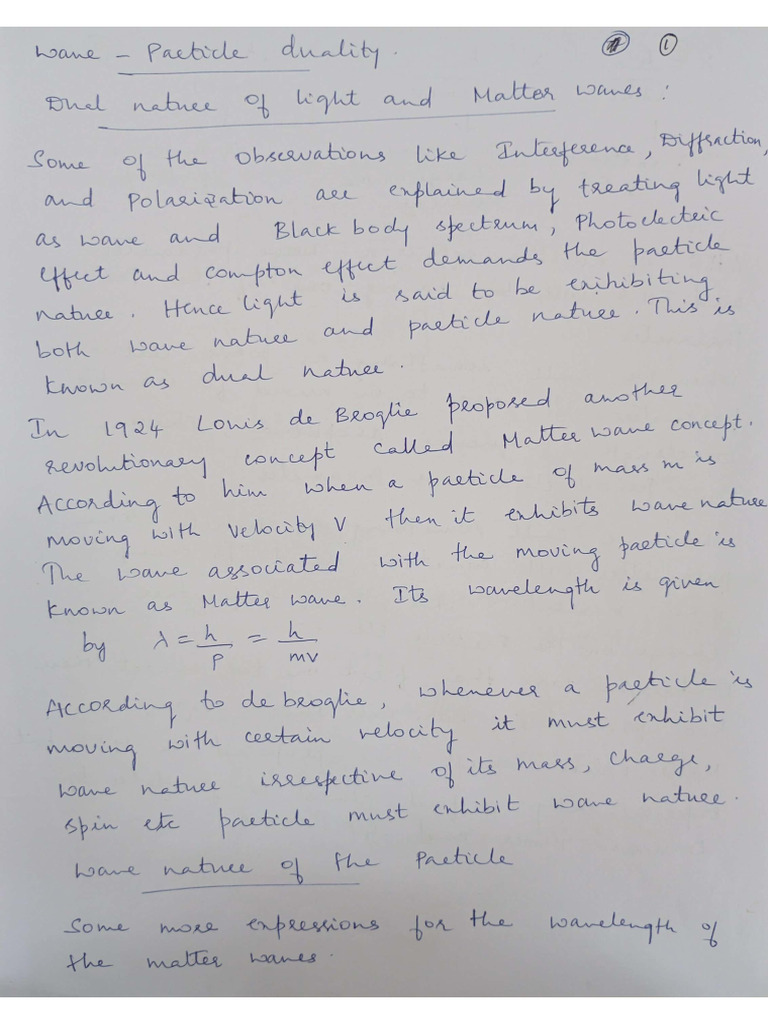 Wave - Particle duality.
1
Dual nature of light and Matter waves :
Some of the observations like Interference, Diffraction,
and Polarization are explained by treating light
as wave and Black body spectrum, Photoelectric
effect and compton effect demands the particle
nature. Hence light is said to be exihibiting
both wave nature and particle nature. This is
known as dual nature.
In 1924 Louis de Broglie proposed another
revolutionary concept called Matter wave concept.
According to him when a particle of mass m is
moving with velocity v then it exhibits wave nature
The wave associated with the moving particle is
known as Matter wave. Its wavelength is given
by λ = h/p = h/mv
According to de broglie, whenever a particle is
moving with certain velocity it must exhibit
wave nature irrespective of its mass, charge,
spin etc particle must exhibit wave nature.
Wave nature of the Particle
Some more expressions for the wavelength of
the matter waves.